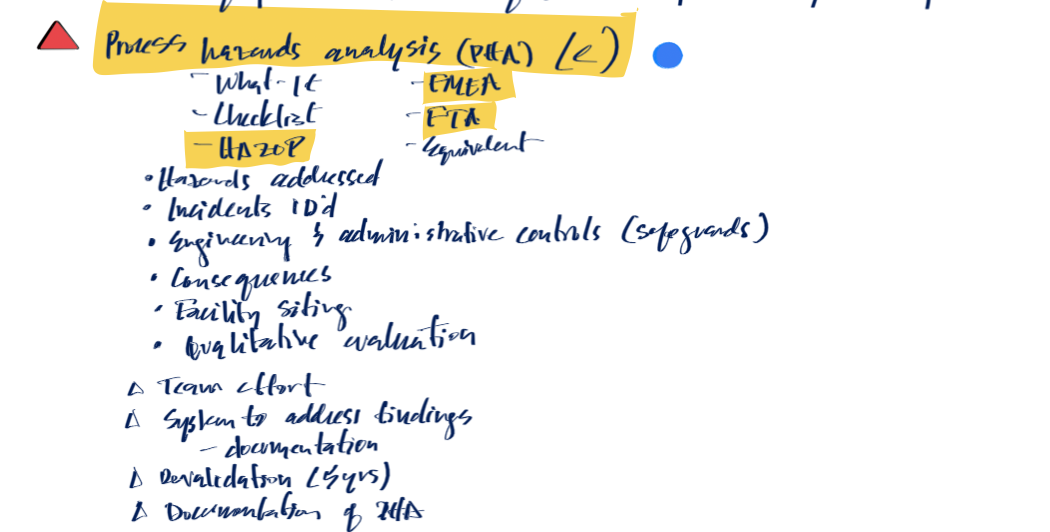 Process hazards analysis (PHA) (e)
- What-If - FMEA
- Checklist - FTA
- HAZOP - Equivalent
• Hazards addressed
• Incidents ID'd
• Engineering & administrative controls (safeguards)
• Consequences
• Facility siting
• Qualitative evaluation
Δ Team effort
Δ System to address findings
- documentation
Δ Revalidation (5yrs)
Δ Documentation of PHA